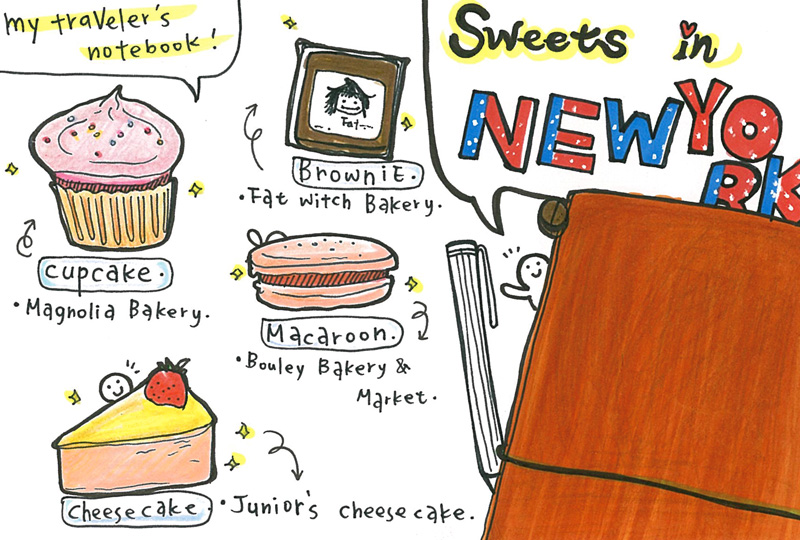 my traveler's
notebook!
Sweets in
NEW YO
RK
Fat
BrowniE.
•Fat witch Bakery.
cupcake.
•Magnolia Bakery.
Macaroon.
•Bouley Bakery &
Market.
cheese cake.
•Junior's cheese cake.